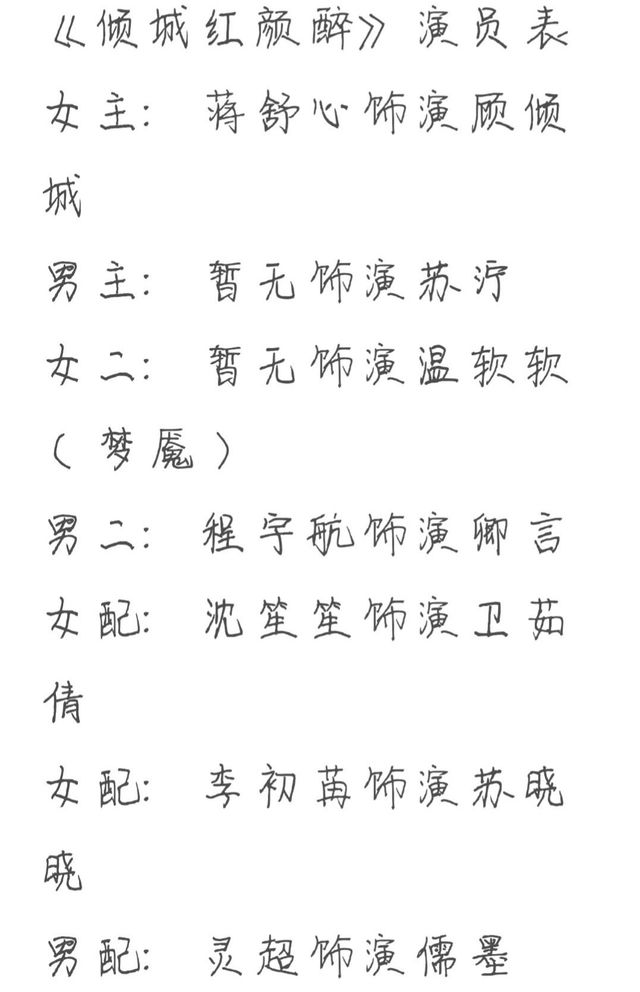 《倾城红颜醉》演员表
女主: 蒋舒心饰演顾倾
城
男主: 暂无饰演苏泞
女二: 暂无饰演温软软
(梦魇)
男二: 程宇航饰演卿言
女配: 沈笙笙饰演卫茹
倩
女配: 李初苒饰演苏晓
晓
男配: 灵超饰演儒墨